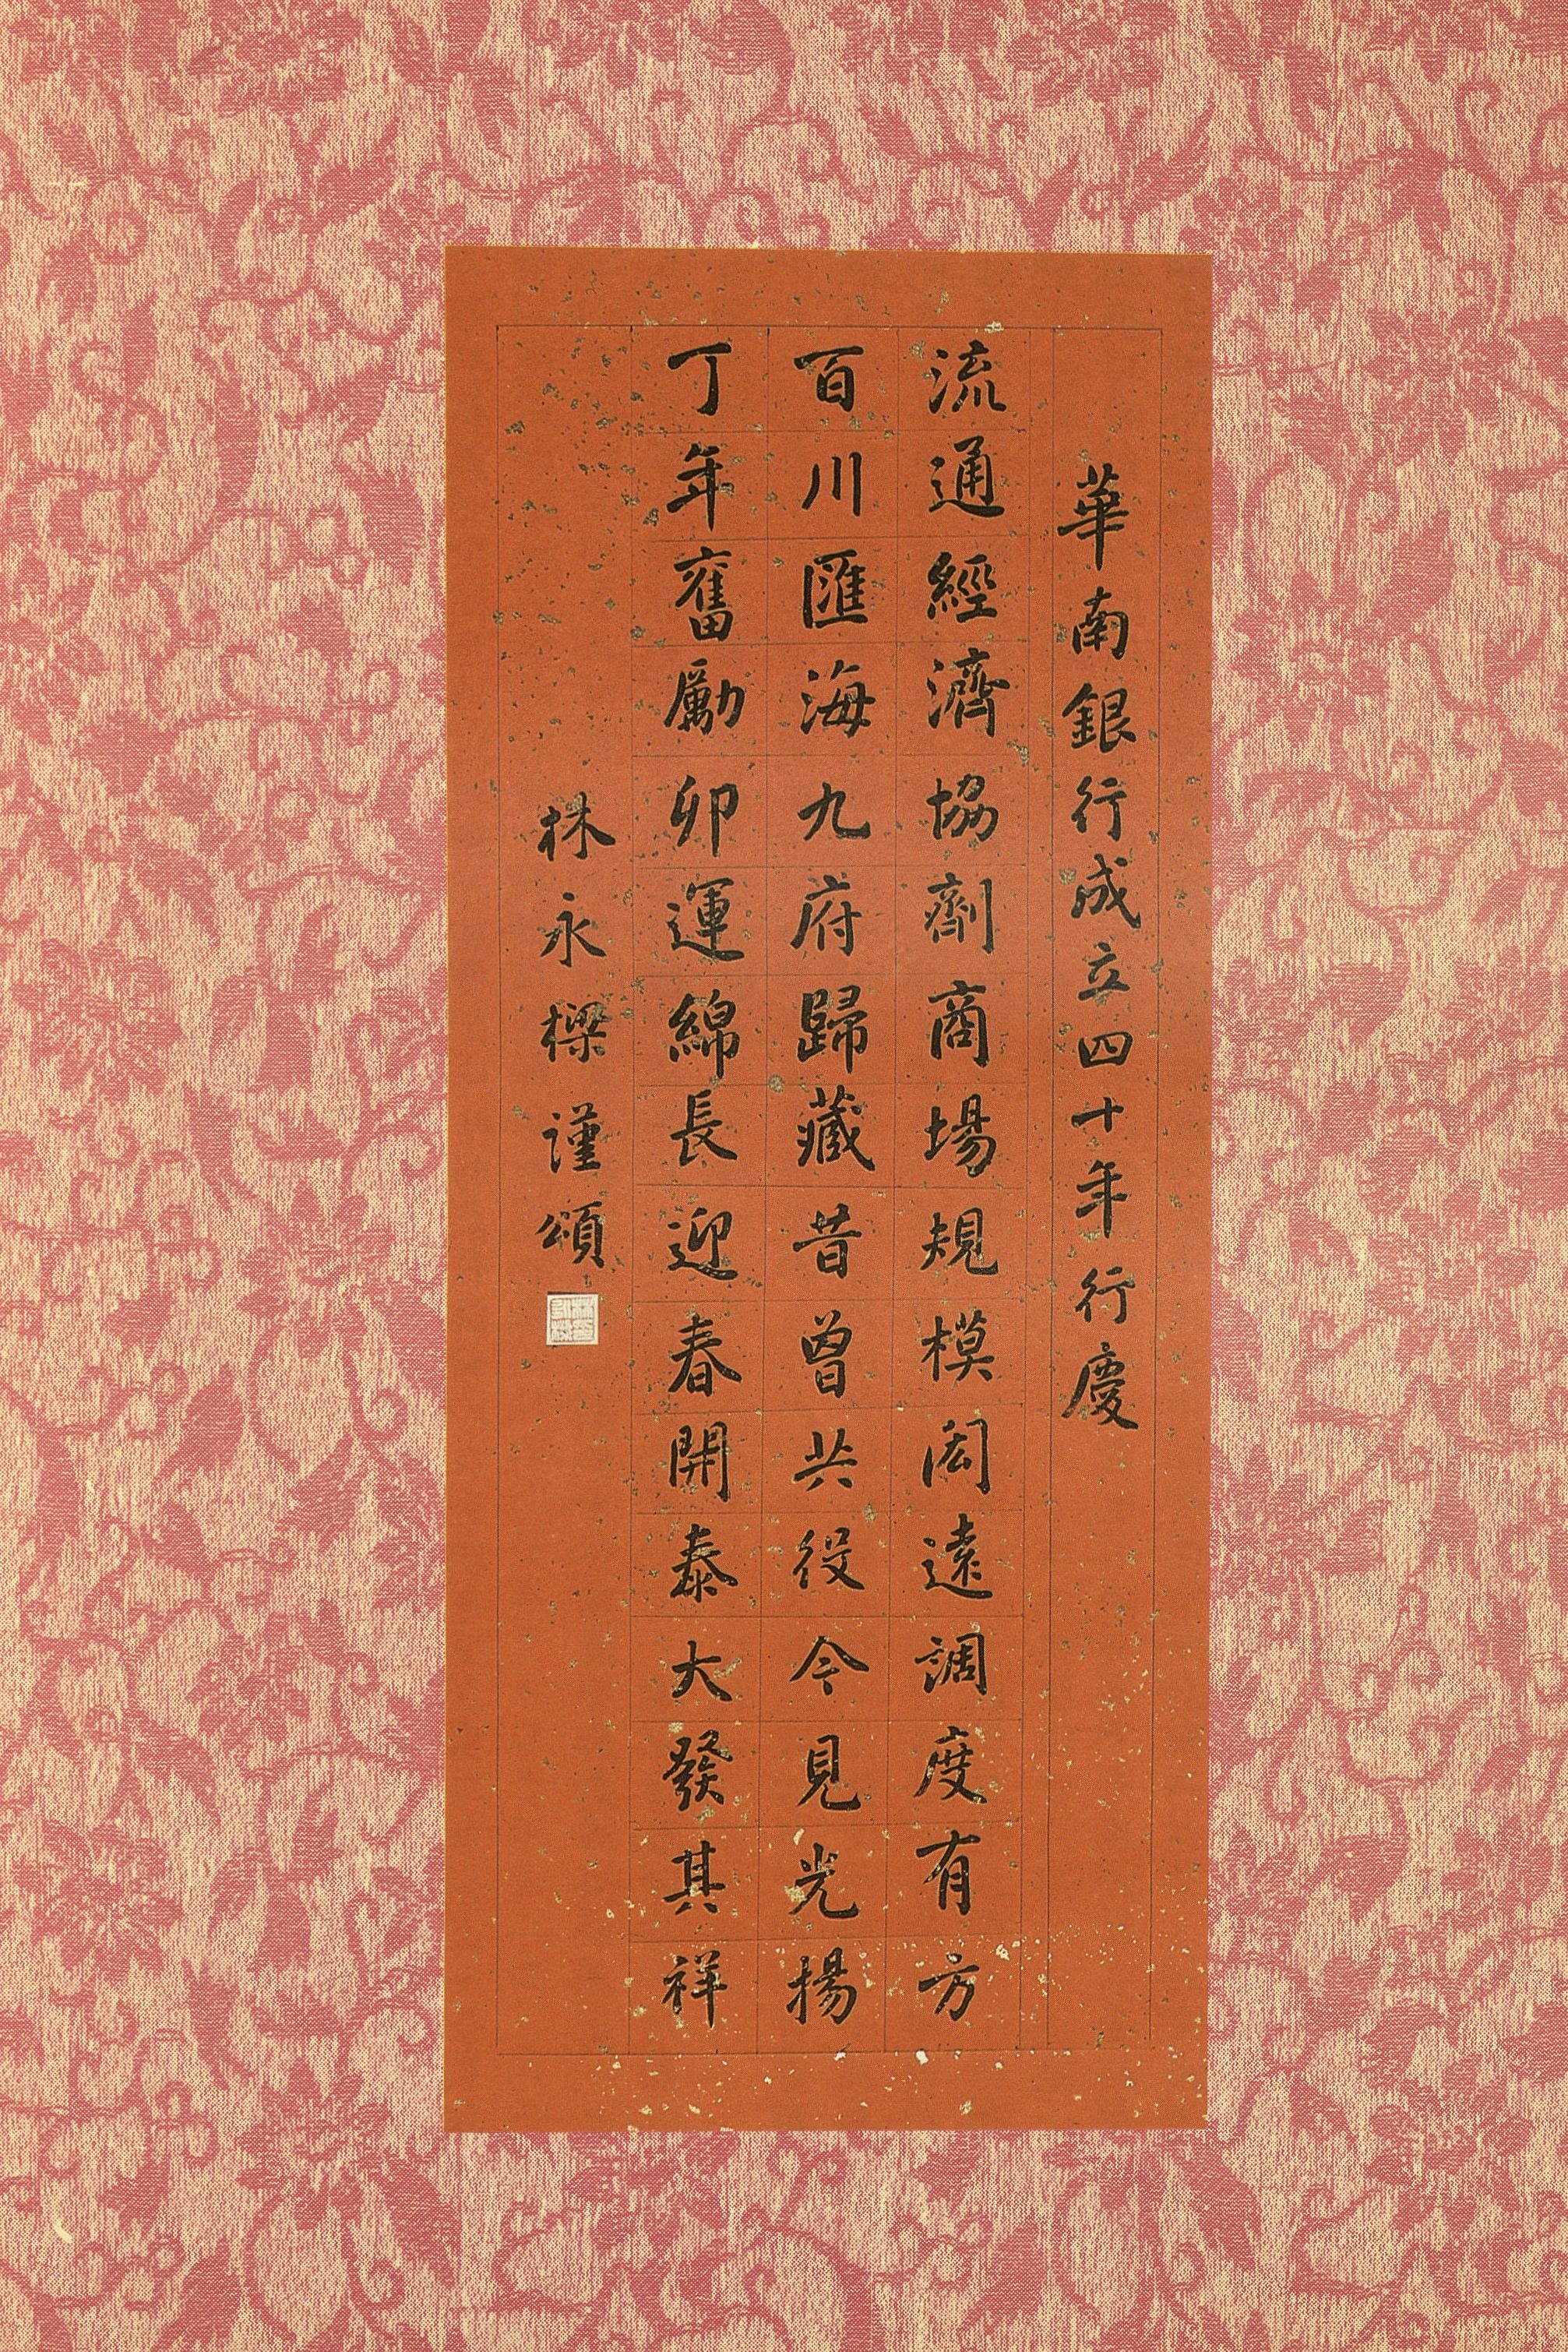 華南銀行成立四十年行慶
流通經濟協劑商場規模閎遠調度有方
百川匯海九府歸藏昔曾共役今見光揚
丁年奮勵卯運綿長迎春開泰大發其祥
林永樑謹頌